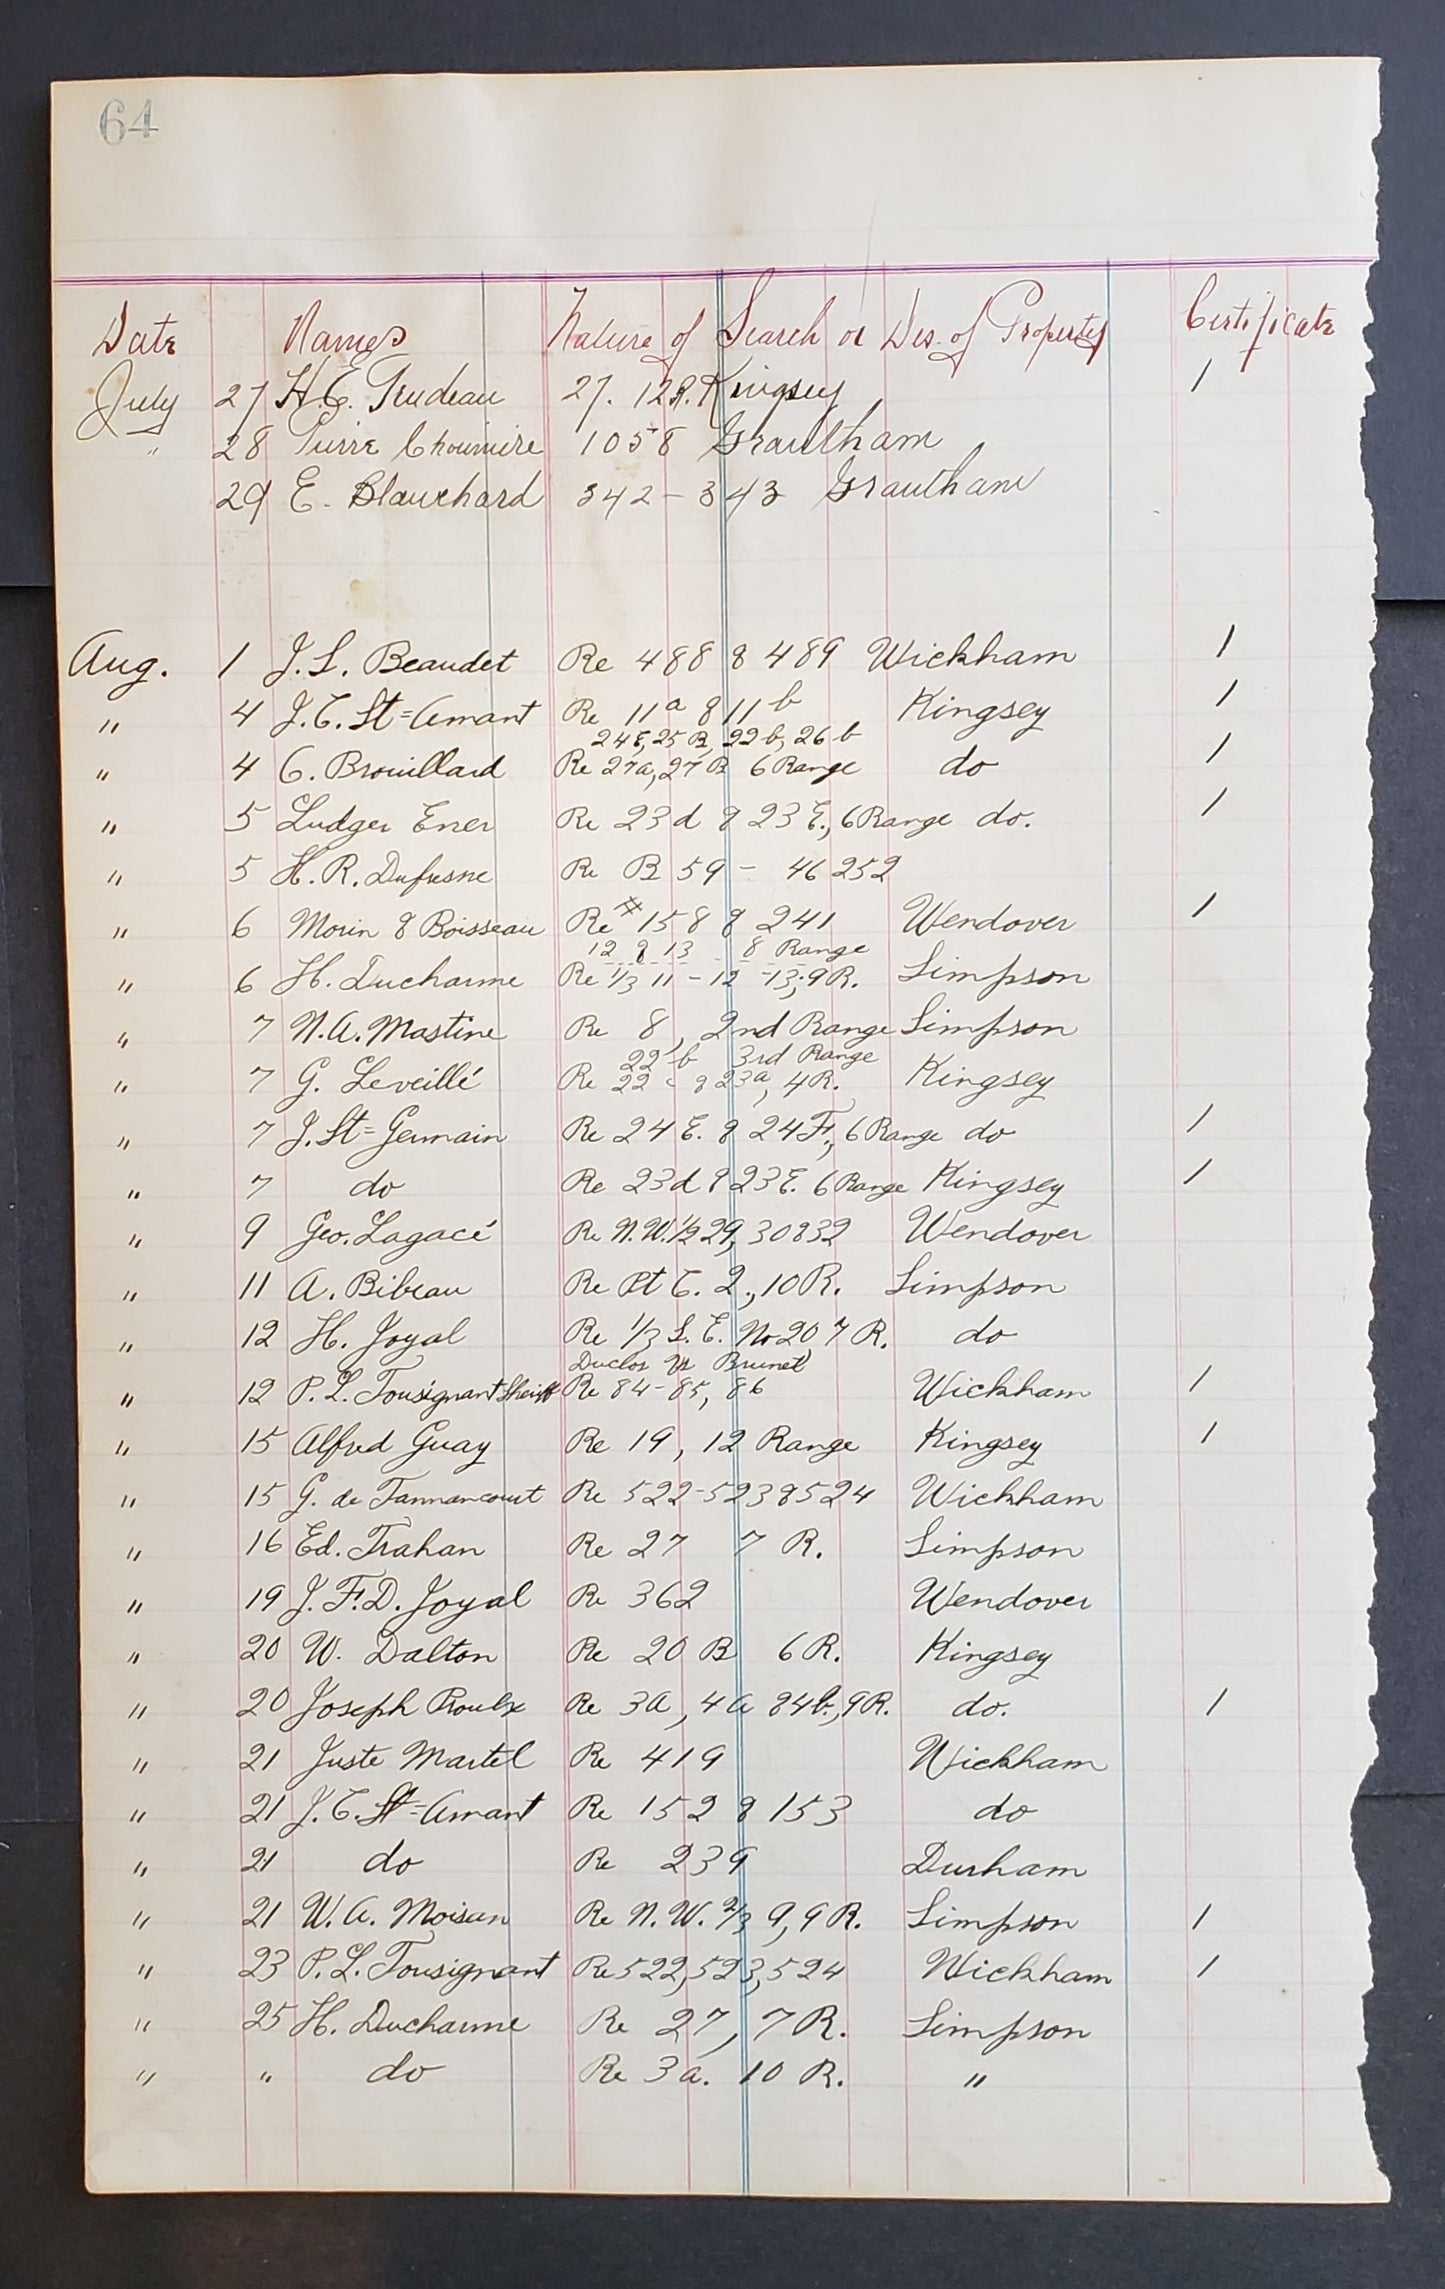 64
Date Names Nature of Search or Des. of Property Certificate
July 27 H.E. Trudeau 27. 12 R. Kingsey 1
" 28 Pierre 1058 Grantham
29 E. Blanchard 342 - 343 Grantham
Aug. 1 J. L. Beaudet Re 488 & 489 Wickham 1
" 4 J.C. St=Amant Re 11a & 11b Kingsey 1
24E, 25 B, 22 b, 26 b
" 4 C. Brouillard Re 27a, 27 B 6 Range do 1
" 5 Ludger Ener Re 23d & 23 E., 6 Range do. 1
" 5 H. R. Dufresne Re B 59 - 46252
" 6 Morin & Boisseau Re #158 & 241 Wendover 1
12 & 13 8 Range
" 6 H. Ducharme Re 1/3 11 - 12 - 13, 9 R. Simpson
" 7 N.A. Mastine Re 8, 2nd Range Simpson
22 b 3rd Range
" 7 G. Leveillé Re 22 c & 23a, 4 R. Kingsey
" 7 J. St=Germain Re 24 E. & 24 F., 6 Range do 1
" 7 do Re 23d & 23 E. 6 Range Kingsey 1
" 9 Geo. Lagacé Re N.W. 1/2 29, 30 & 32 Wendover
" 11 A. Bibeau Re Pt C. 2., 10 R. Simpson
" 12 H. Joyal Re 1/3 S. E. No 20 7 R. do
Duclos vs Brunet
" 12 P. L. Tousignant Sheriff Re 84 - 85, 86 Wickham 1
" 15 Alfred Guay Re 19, 12 Range Kingsey 1
" 15 G. de Tonnancourt Re 522 - 523 & 524 Wickham
" 16 Ed. Trahan Re 27 7 R. Simpson
" 19 J. F. D. Joyal Re 362 Wendover
" 20 W. Dalton Re 20 B 6 R. Kingsey
" 20 Joseph Proulx Re 3a, 4a & 4b., 9 R. do. 1
" 21 Juste Martel Re 419 Wickham
" 21 J. C. St=Amant Re 152 & 153 do
" 21 do Re 239 Durham
" 21 W. A. Moisan Re N. W. 2/3 9, 9 R. Simpson 1
" 23 P. L. Tousignant Re 522, 523, 524 Wickham 1
" 25 H. Ducharme Re 27, 7 R. Simpson
" " do Re 3a. 10 R. "